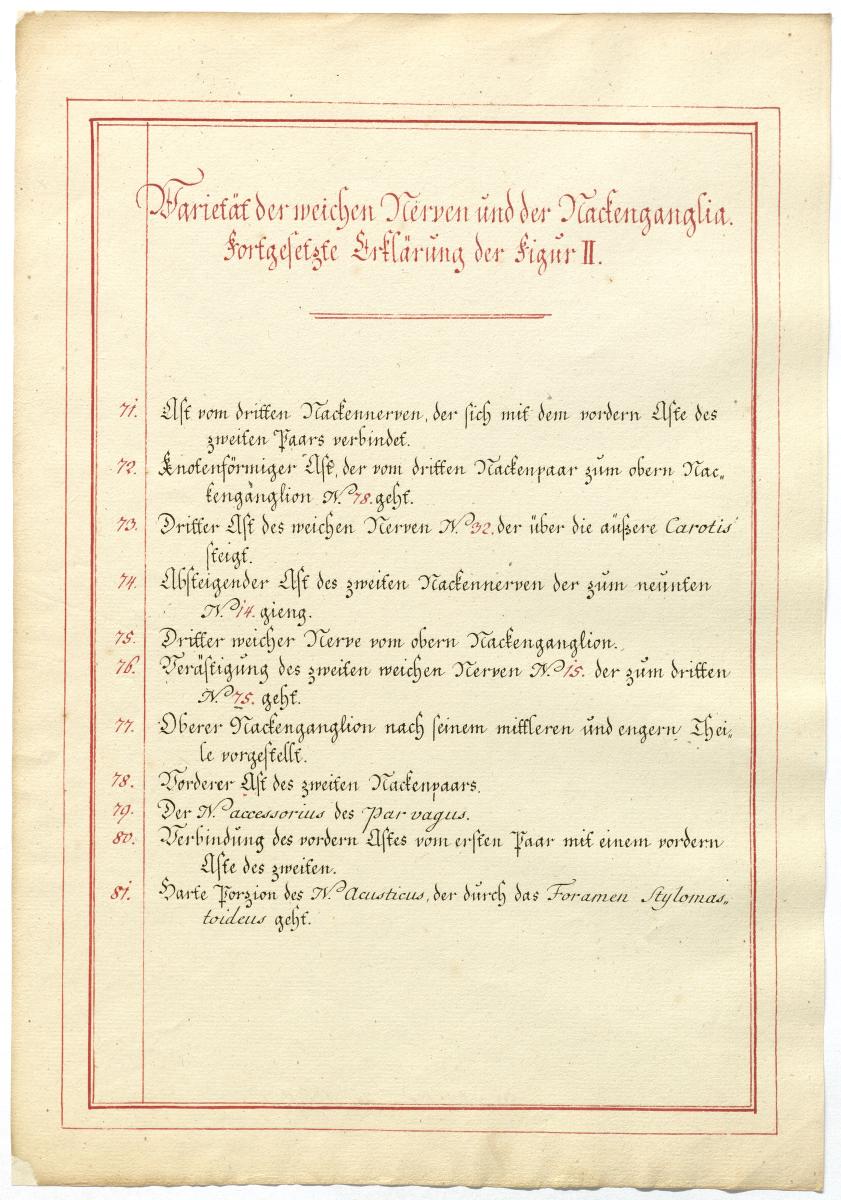 Varietät der weichen Nerven und der Nackenganglia.
Fortgesetzte Erklärung der Figur II.
71. Ast vom dritten Nackennerven, der sich mit dem vordern Aste des
zweiten Paars verbindet.
72. Knotenförmiger Ast, der vom dritten Nackenpaar zum obern Nac„
kenganglion No 78. geht.
73. Dritter Ast des weichen Nerven No 32. der über die äußere Carotis
steigt.
74. Absteigender Ast des zweiten Nackennerven der zum neunten
No 14. gieng.
75. Dritter weicher Nerve vom obern Nackenganglion.
76. Verästigung des zweiten weichen Nerven No 15. der zum dritten
No 75. geht.
77. Oberer Nackenganglion nach seinem mittleren und engern Thei„
le vorgestellt.
78. Vorderer Ast des zweiten Nackenpaars.
79. Der No accessorius des par vagus.
80. Verbindung des vordern Astes vom ersten Paar mit einem vordern
Aste des zweiten.
81. Harte Porzion des No Acusticus, der durch das Foramen Stylomas„
toideus geht.